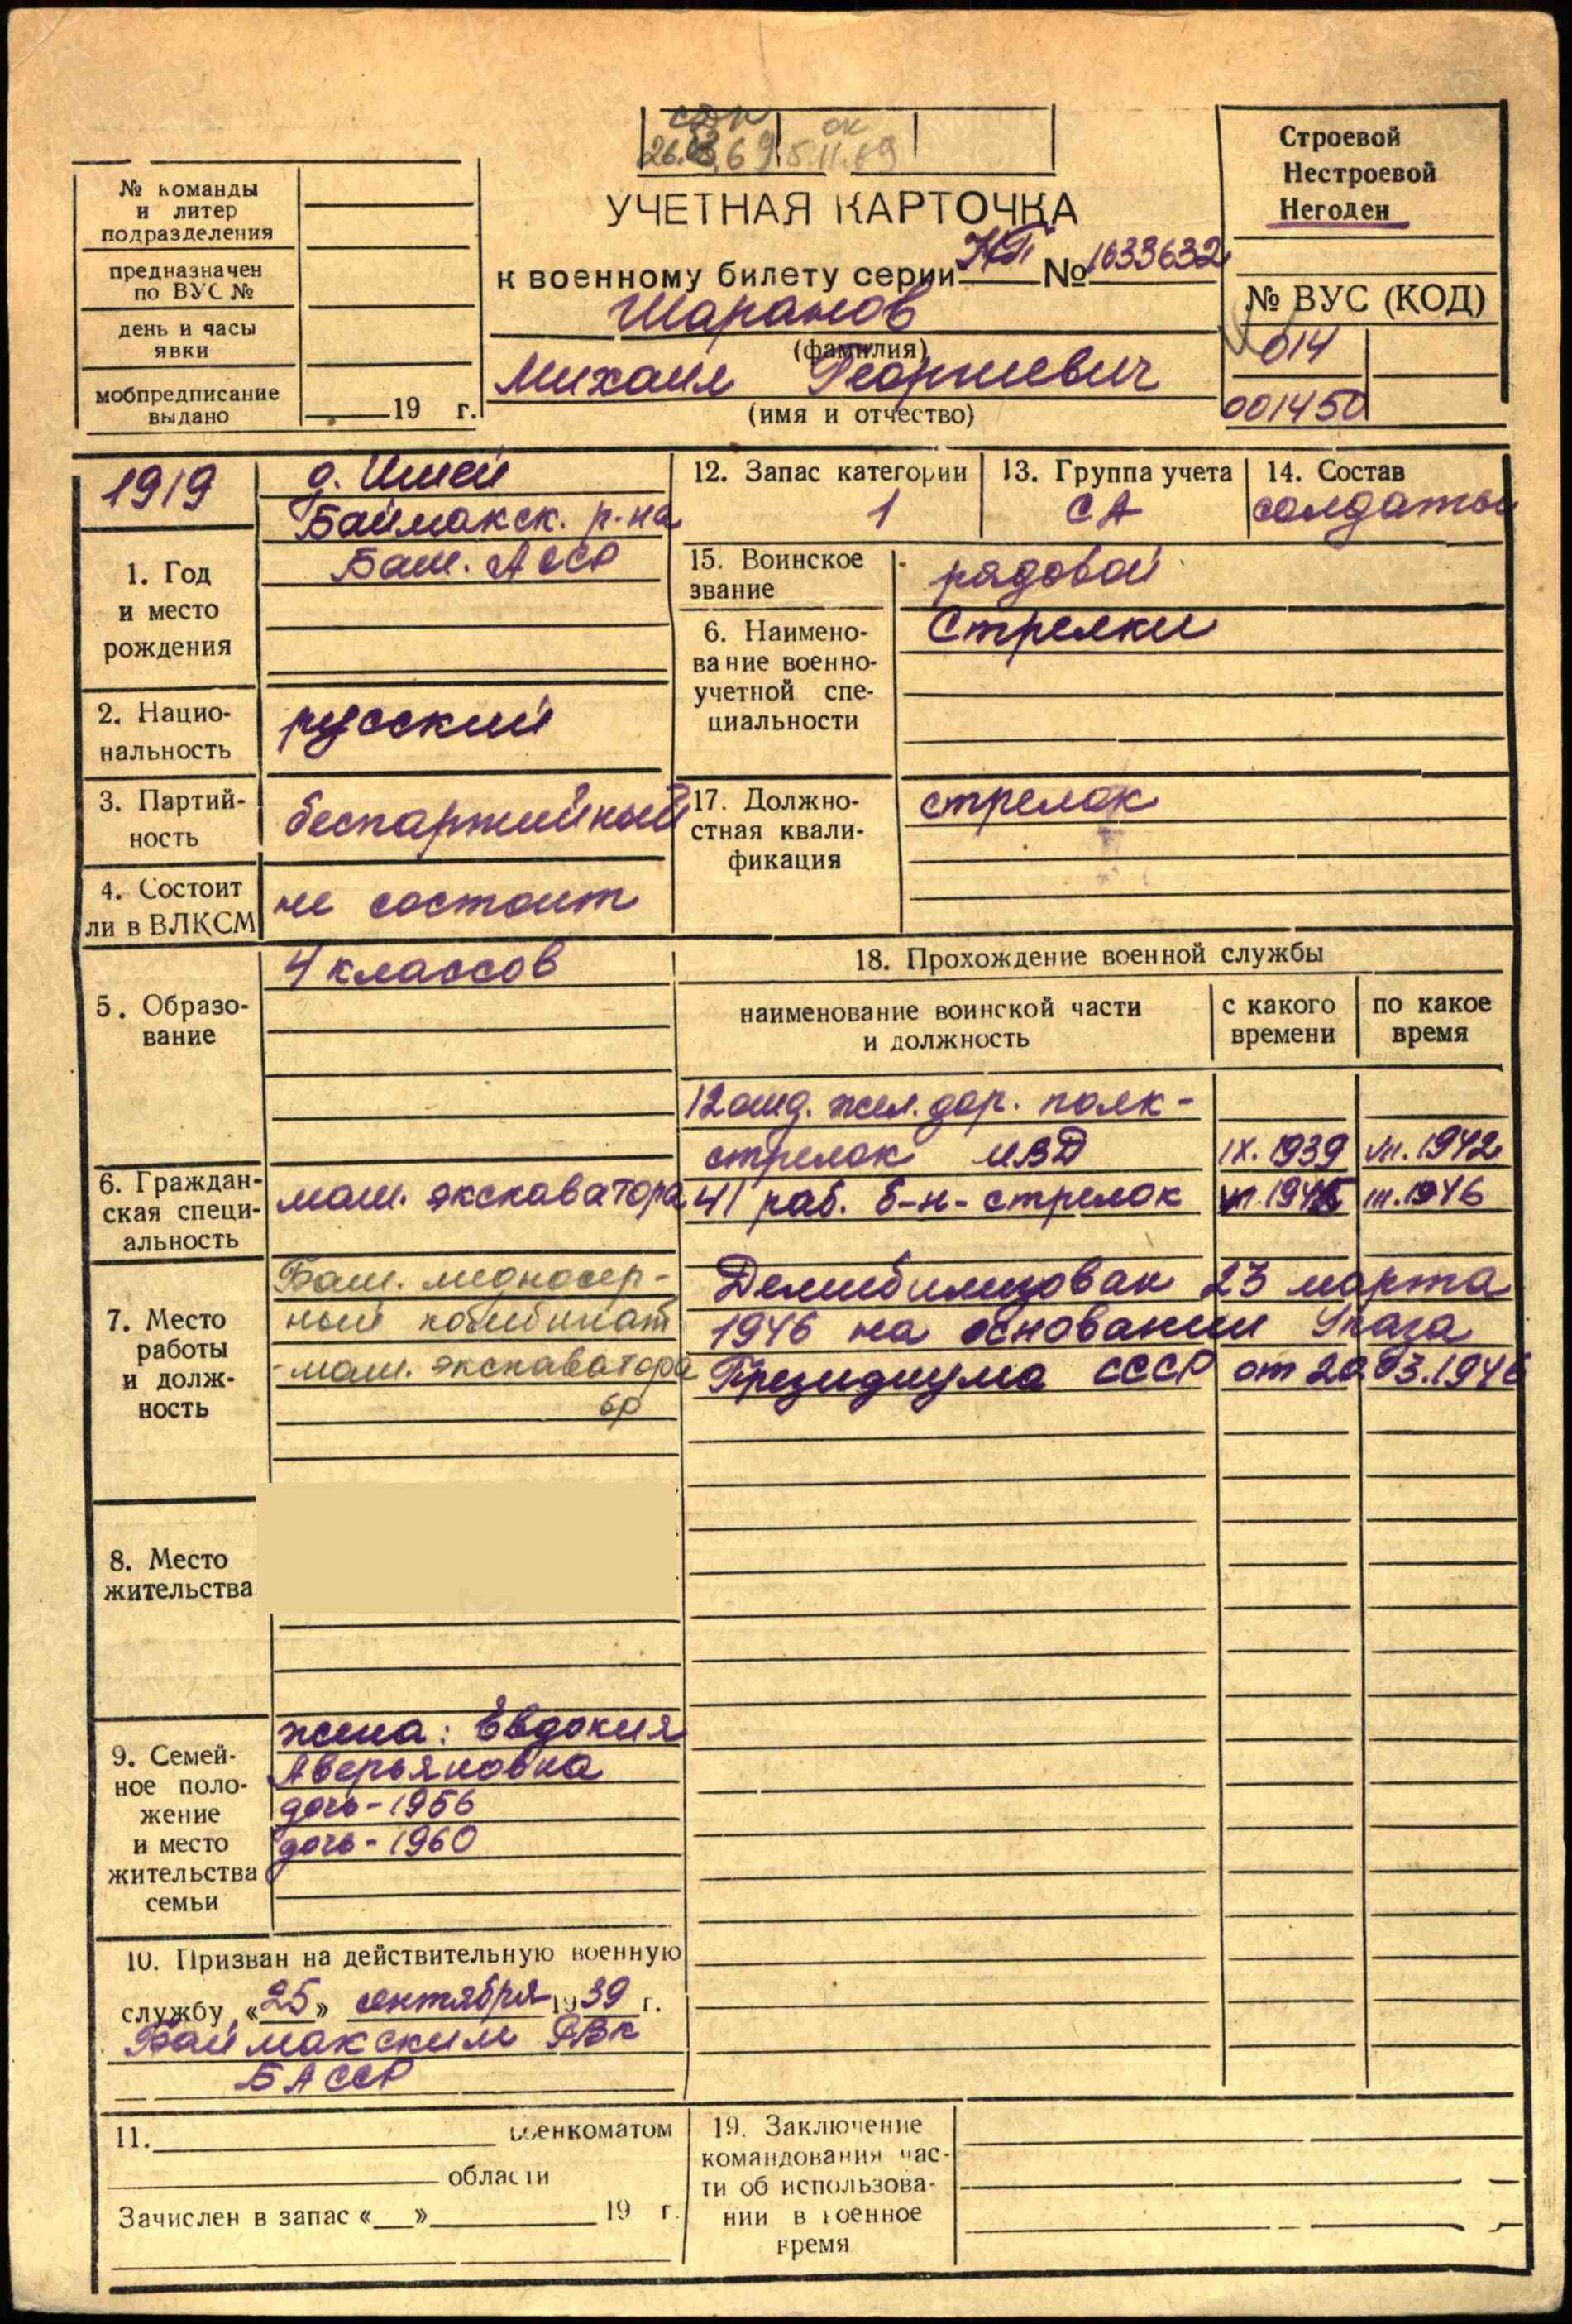 26. 69 5.11.69
ок
Строевой
Нестроевой
Негоден
№ команды
и литер
подразделения
предназначен
по ВУС №
день и часы
явки
мобпредписание
выдано
19 г.
УЧЕТНАЯ КАРТОЧКА
к военному билету серии НП № 1633632
Шаранов
(фамилия)
Михаил Георгиевич
(имя и отчество)
№ ВУС (КОД)
014
001450
1919
1. Год
и место
рождения
д. Ишей
Баймакск. р-на
Баш. АССР
2. Нацио-
нальность
русский
3. Партий-
ность
беспартийный
4. Состоит
ли в ВЛКСМ
не состоит
5. Образо-
вание
4 классов
6. Граждан-
ская специ-
альность
маш. экскаватора
7. Место
работы
и долж-
ность
Баш. медносер-
ный комбинат
-маш. экскаватора
6р
8. Место
жительства
9. Семей-
ное поло-
жение
и место
жительства
семьи
жена: Евдокия
Аверьяновна
дочь - 1956
дочь - 1960
10. Призван на действительную военную
службу «25» сентября 1939 г.
Баймакским РВК
БАССР
11. военкоматом
области
Зачислен в запас « » 19 г.
12. Запас категории
1
13. Группа учета
СА
14. Состав
солдаты
15. Воинское
звание
рядовой
6. Наимено-
вание военно-
учетной спе-
циальности
Стрелки
17. Должно-
стная квали-
фикация
стрелок
18. Прохождение военной службы
наименование воинской части
и должность
с какого
времени
по какое
время
12 отд. жел. дор. полк -
стрелок МВД IX.1939 VII.1942
41 раб. б-н - стрелок 1945 III.1946
Демибилизован 23 марта
1946 на основании Указа
Президиума СССР от 20.03.1946
19. Заключение
командования час-
ти об использова-
нии в военное
время